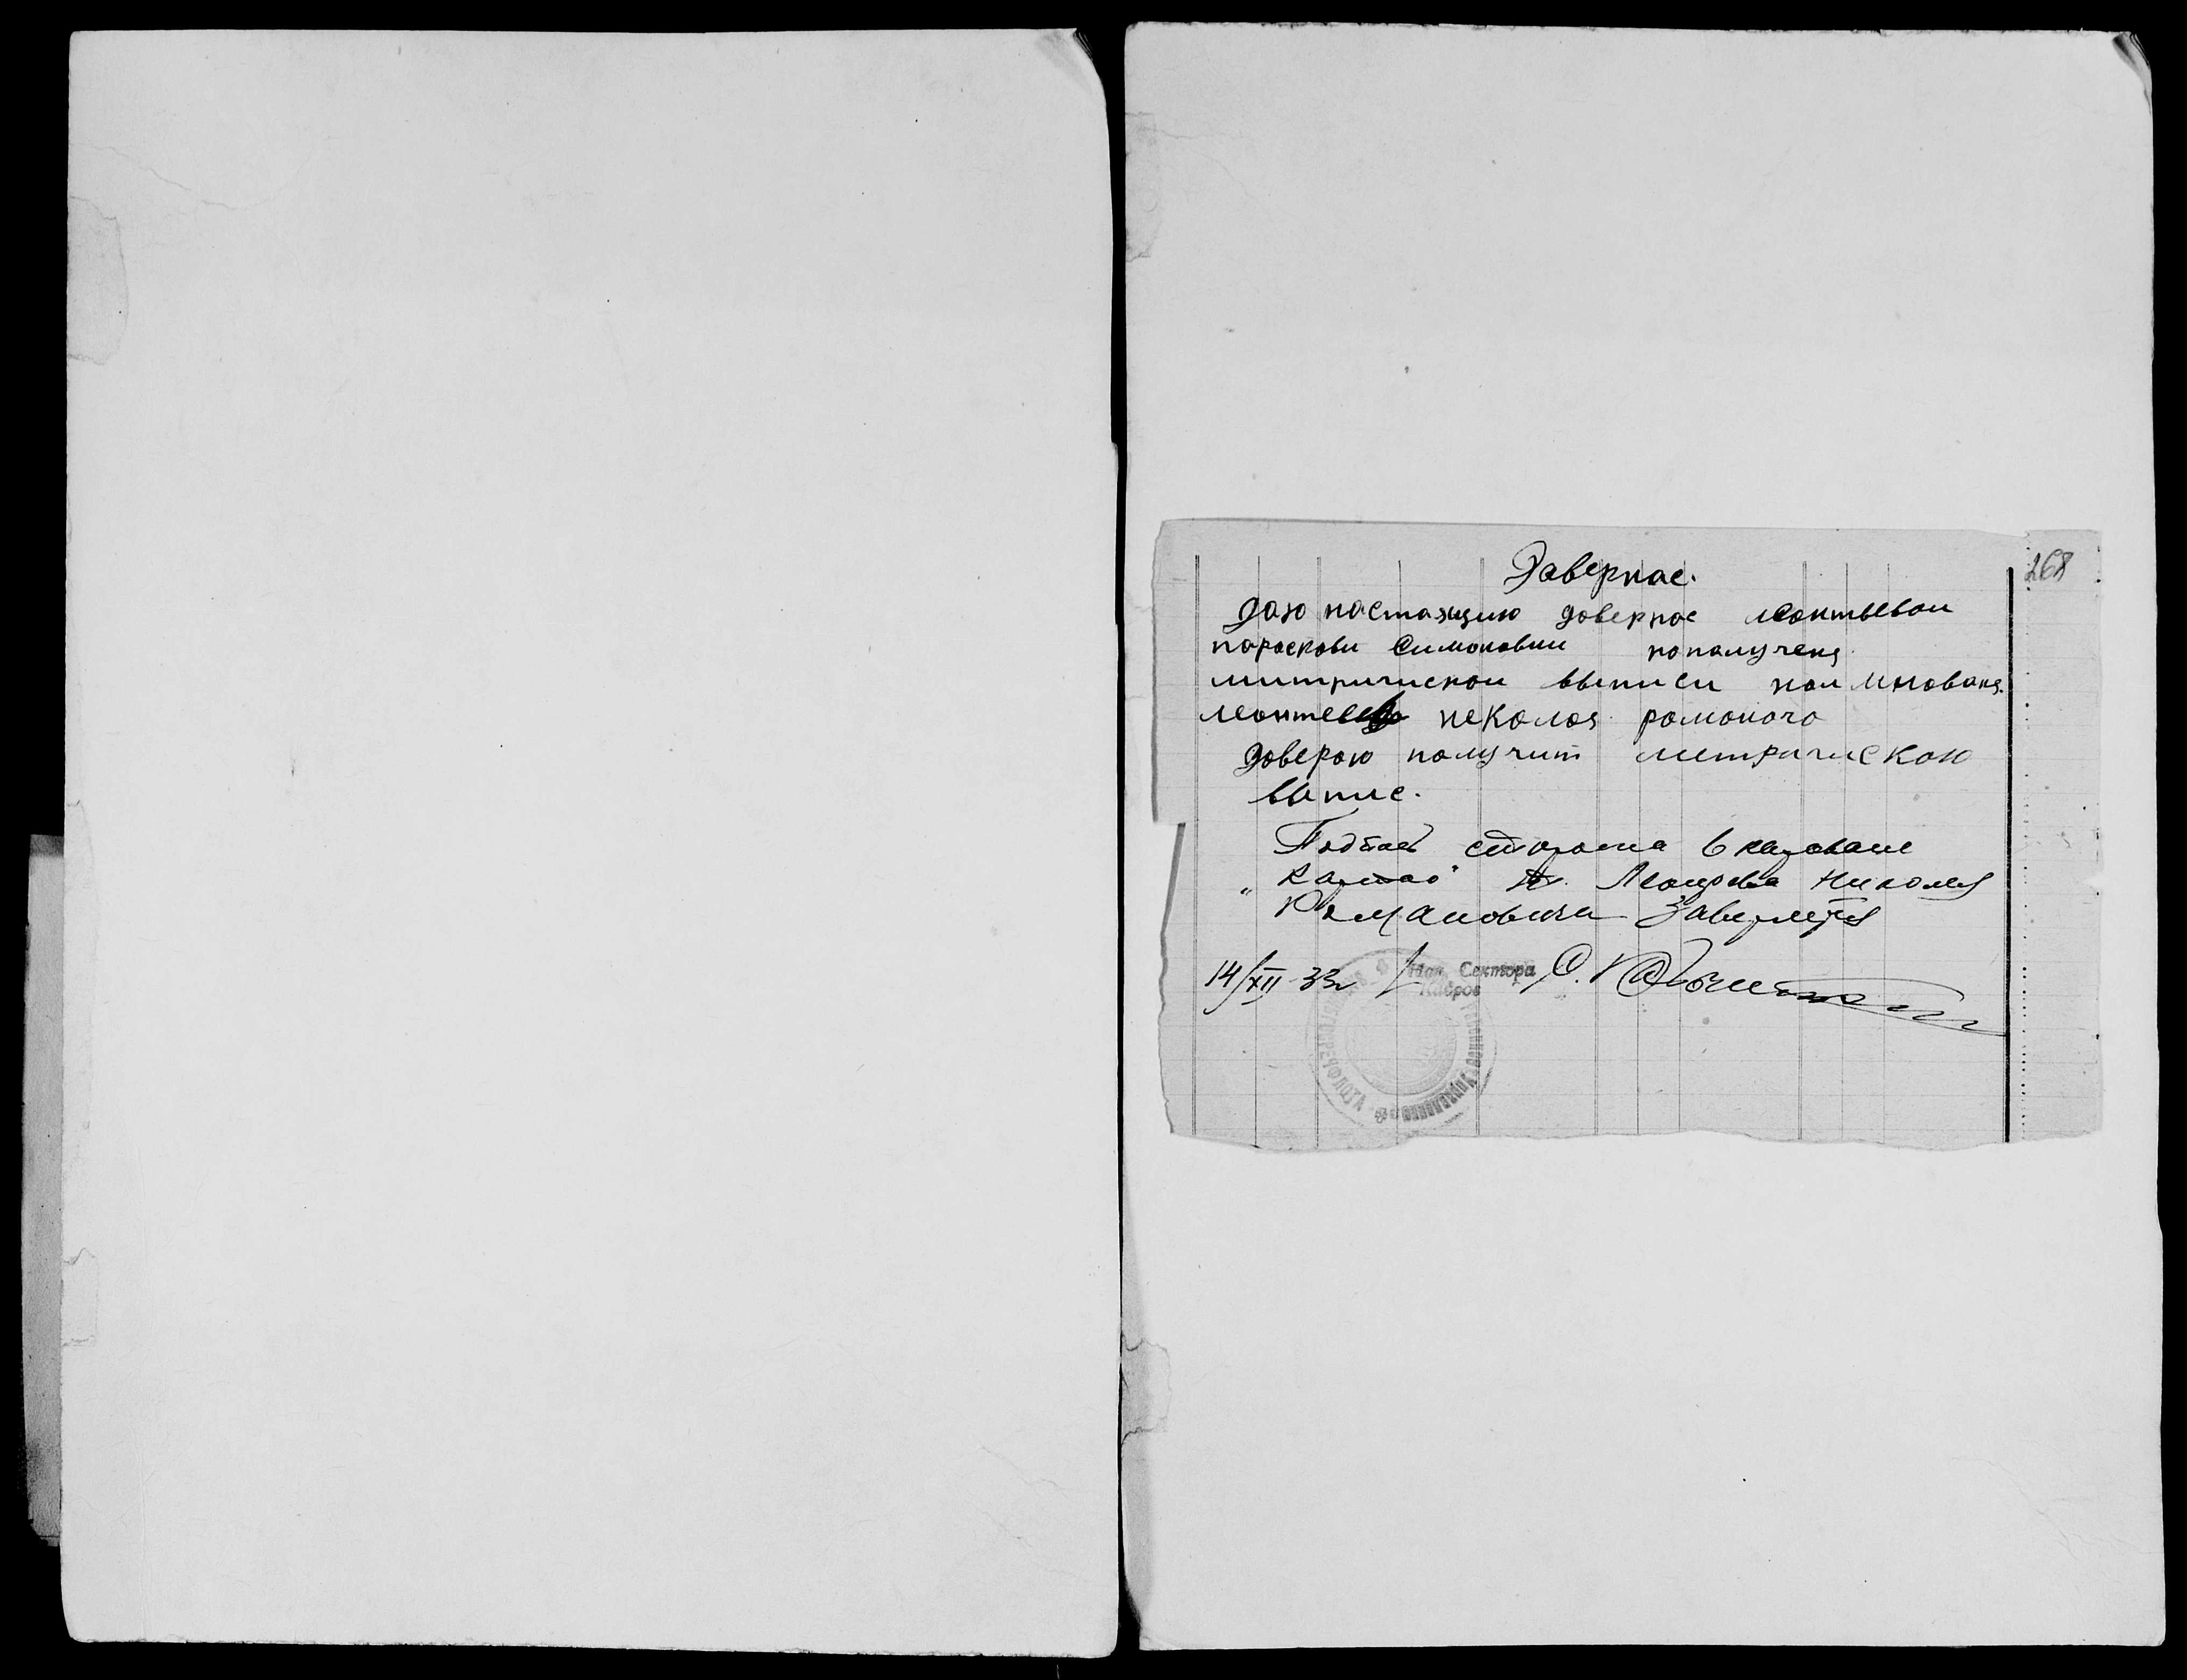 268
Довернае.
даю настаящию довернае леонтьевои
пароскови Симоновни на палучения
митричискои выписи наи минования
леонтева неколоя ромоного
доверою палучит метричискою
выпис.
Подпись сторожа в караване
Леонтьева Николая
Романовича Заверяется
14/XII 33г Нач. Сектора
Кадров
РЕЧФЛОТА